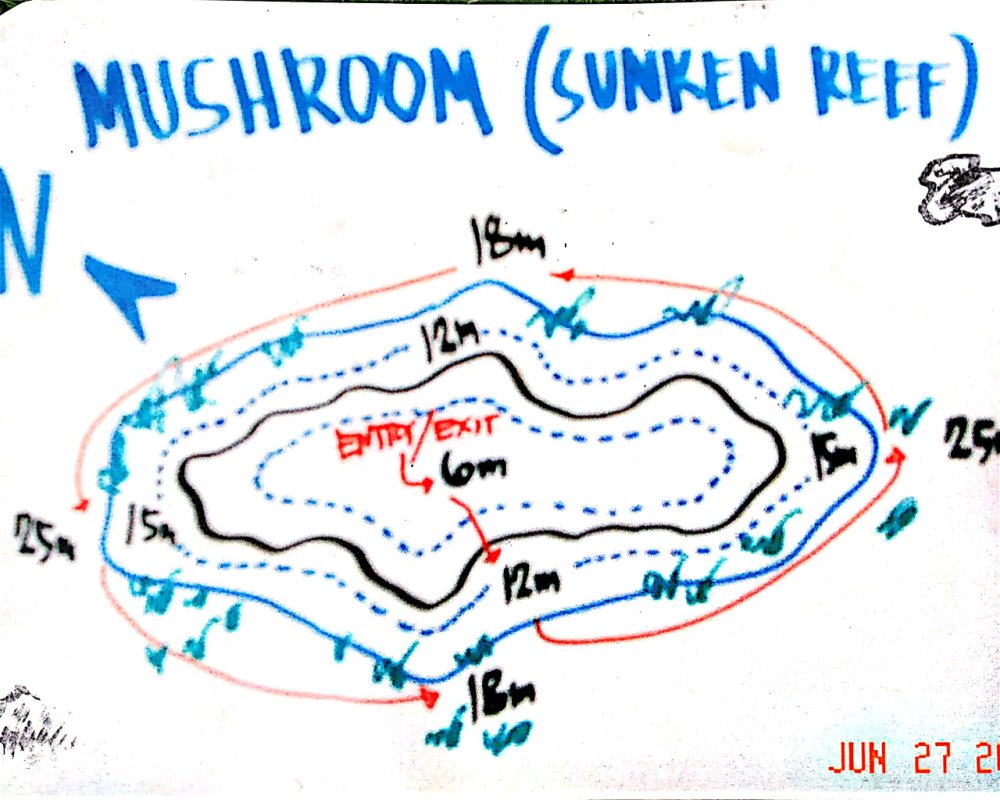 MUSHROOM (SUNKEN REEF)
N
18m
12m
ENTRY/EXIT
6m
15m
25m
15m
12m
18m
JUN 27